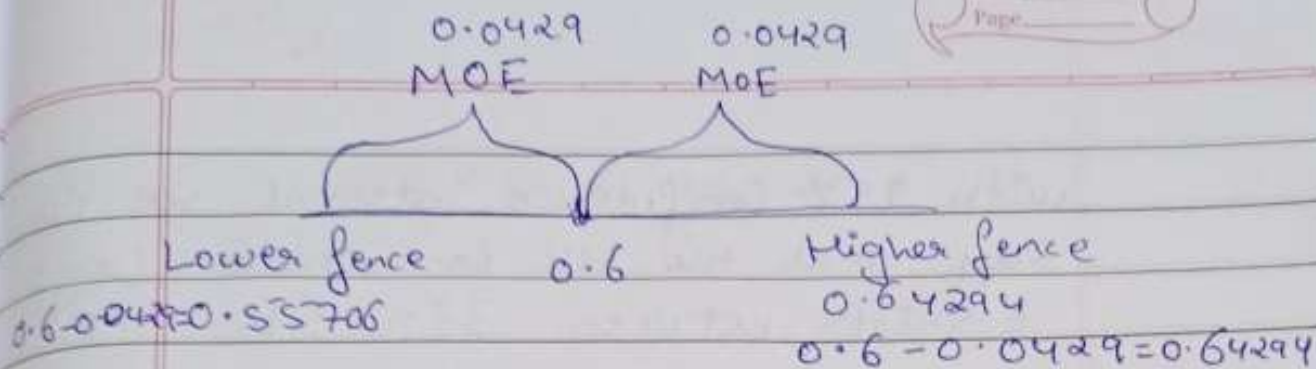 Page
0.0429 0.0429
MOE MOE
Lower fence 0.6 Higher fence
0.6-0.0429=0.55706 0.64294
0.6-0.0429=0.64294